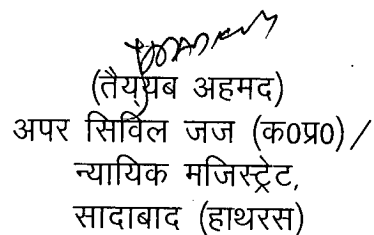 (तैय्यब अहमद)
अपर सिविल जज (क०प्र०) /
न्यायिक मजिस्ट्रेट,
सादाबाद (हाथरस)